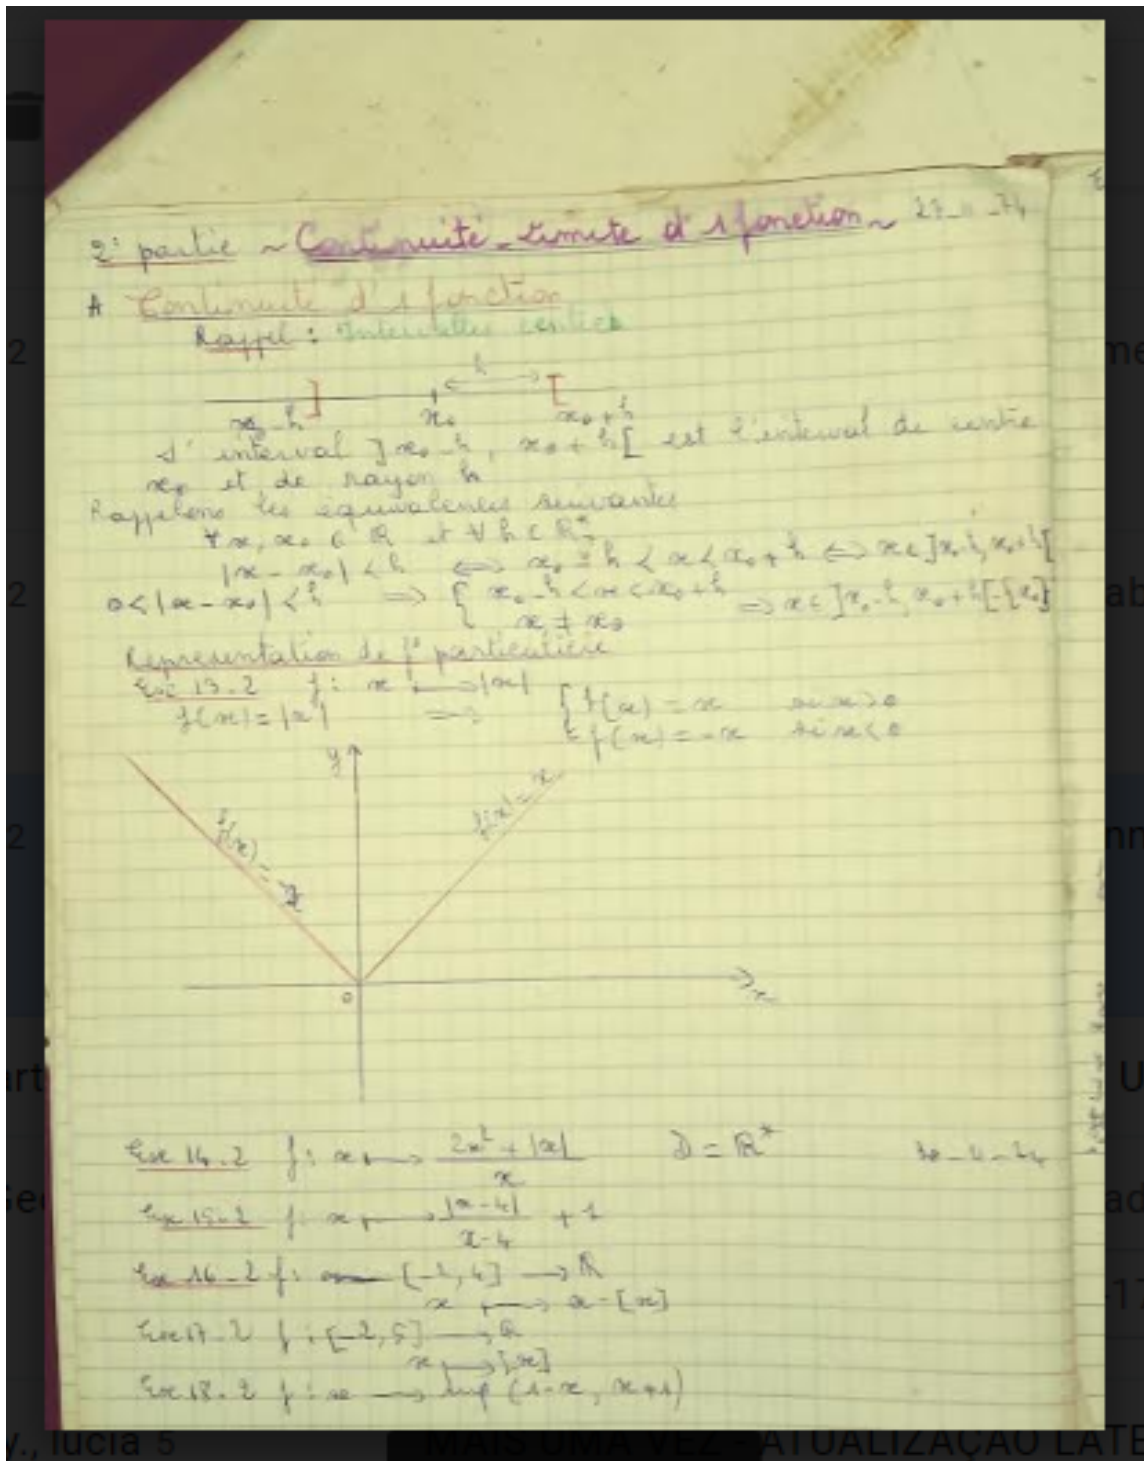 2e partie ~ Continuité - Limite d'1 fonction ~
A Continuité d'1 fonction
Rappel : Intervalles centrés
h
x0-h x0 x0+h
L'interval ]x0-h, x0+h[ est l'interval de centre
x0 et de rayon h
Rappelons les équivalences suivantes
∀x, x0 ∈ ℝ et ∀h ∈ ℝ*+
|x-x0| < h ⟺ x0-h < x < x0+h ⟺ x ∈ ]x0-h, x0+h[
0<|x-x0|<h ⟹ { x0-h < x < x0+h ⟹ x ∈ ]x0-h, x0+h[-{x0}
x ≠ x0
Représentation de fo particulière
Exe 13-2 f: x ⟼ |x|
f(x)=|x| ⟹ { f(x) = x si x>0
f(x) = -x si x<0
y
f(x) = -x
f(x) = x
o
x
Exe 14-2 f: x ⟼ (2x²+|x|)/x D = ℝ*
Ex 15-2 f: x ⟼ |x-4|/(x-4) + 1
Ex 16-2 f: [-2,4] ⟶ ℝ
x ⟼ x-[x]
Exe 17-2 f: [-2,5] ⟶ ℝ
x ⟼ [x]
Exe 18-2 f: x ⟶ sup (1-x, x+1)
y., lucia 5
MAIS UMA VEZ - ATUALIZAÇÃO LATE